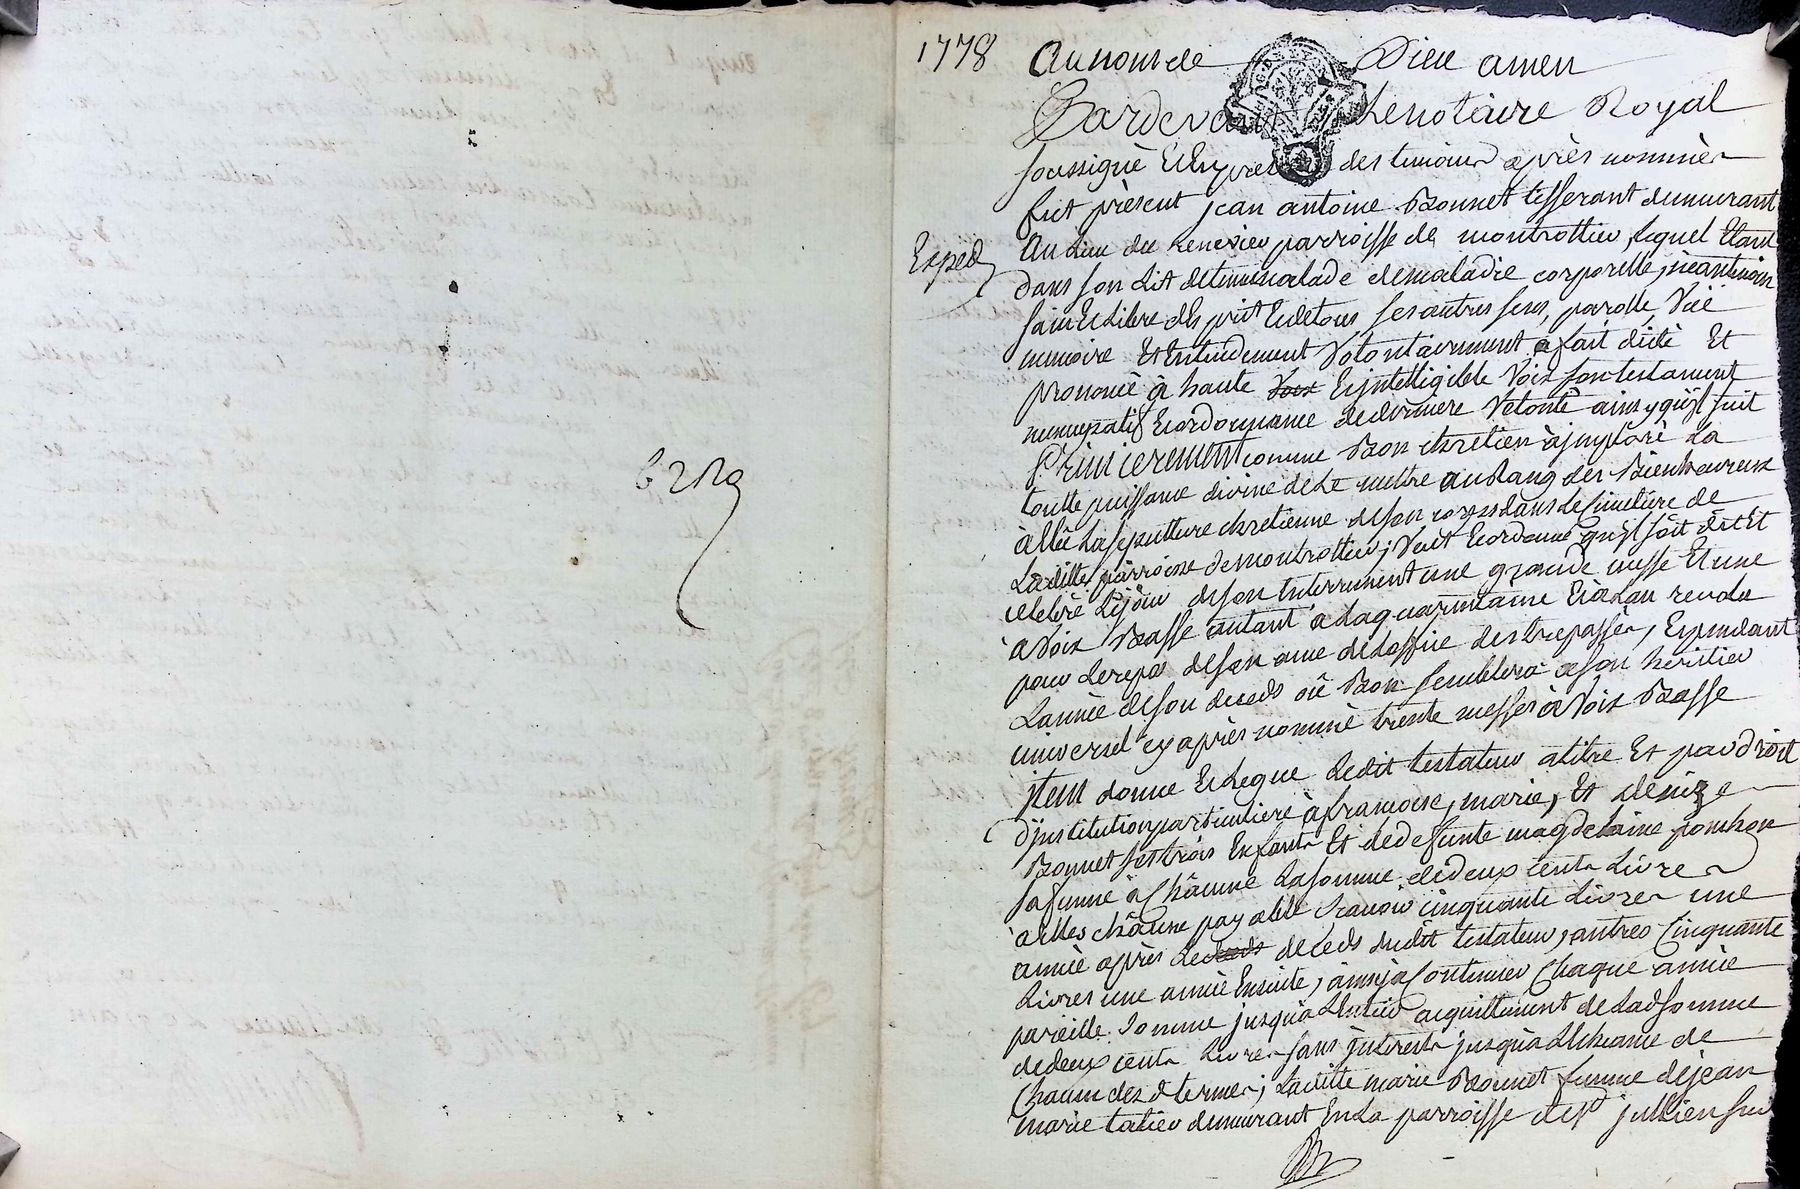 1778
Au nom de Dieu amen
Pardevant Le notaire Royal
soussigné Et En presence des temoins après nommès
fut présent jean antoine Bonnet tisserant demeurant
Exped
Au Lieu du parroisse de montrottier lequel Etant
dans son Lit detenu malade de maladie corporelle, neantmoin
sain Et Libre d'Esprit Et de tous ses autres sens, parolle, Vüe
memoire Et Entendement Volontairement a fait dicté Et
prononcé à haute Voix Et jntelligible Voix son testament
nuncupatif Et ordonnance de derniere Volonté ainsy qu'jl suit
Premierement comme Bon chretien à jmploré La
toutte puissance divine de Le mettre au Rang des Bienheureux
à Elû La sepulture chretienne de son corps dans Le Cimetiere de
Laditte parroisse de montrottier; Veut Et ordonne qu'jl soit dit Et
celebré Le jour de son Enterrement une grande messe Et une
à Voix Basse autant à La quarantaine Et à L'an revolu
pour Le repos de son ame de L'office des trepassès, Et pendant
L'année de son deceds où Bon semblera à son heritier
universel cy après nommé trente messes à Voix Basse
jtem donne Et Legue Ledit testateur a titre Et par droit
d'jnstitution particuliere à francoise, marie, Et Denize
Bonnet ses trois Enfants Et de defunte magdelaine ponchon
sa femme à Châcune La somme de deux cents Livres
à Elles châcune payable Scavoir cinquante Livres une
année après Le deceds deceds dudit testateur, autres Cinquante
Livres une année Ensuite, ainsy à Continuer Chaque année
pareille somme jusqu'à L'Entier acquittement de Lad somme
de deux cents Livres sans jnterests jusqu'à L'Echeance de
Chacun desd termes; Laditte marie Bonnet femme de jean
marie tatiev demeurant En La parroisse de St jullien sur